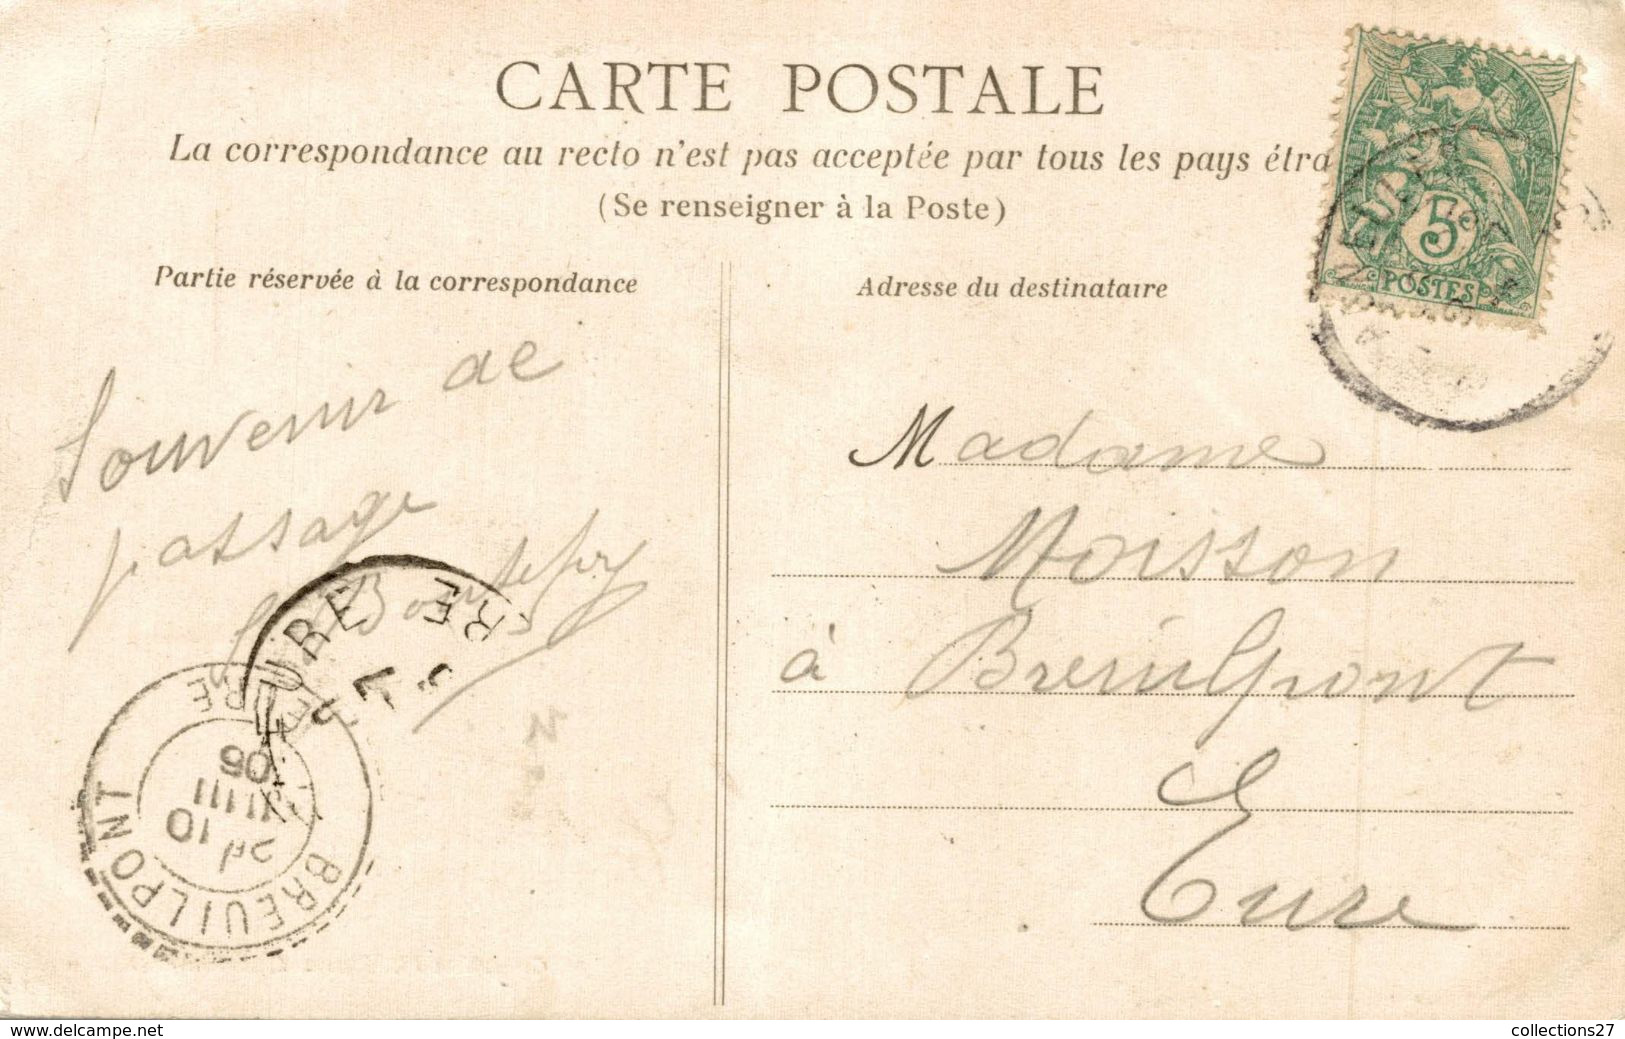 CARTE POSTALE
La correspondance au recto n'est pas acceptée par tous les pays étra
(Se renseigner à la Poste)
Partie réservée à la correspondance
Adresse du destinataire
5c
POSTES
Souvenir de
passage
Madame
Moisson
à Breuilpont
Eure
EURE
RE
BREUILPONT
10
06
www.delcampe.net
collections27